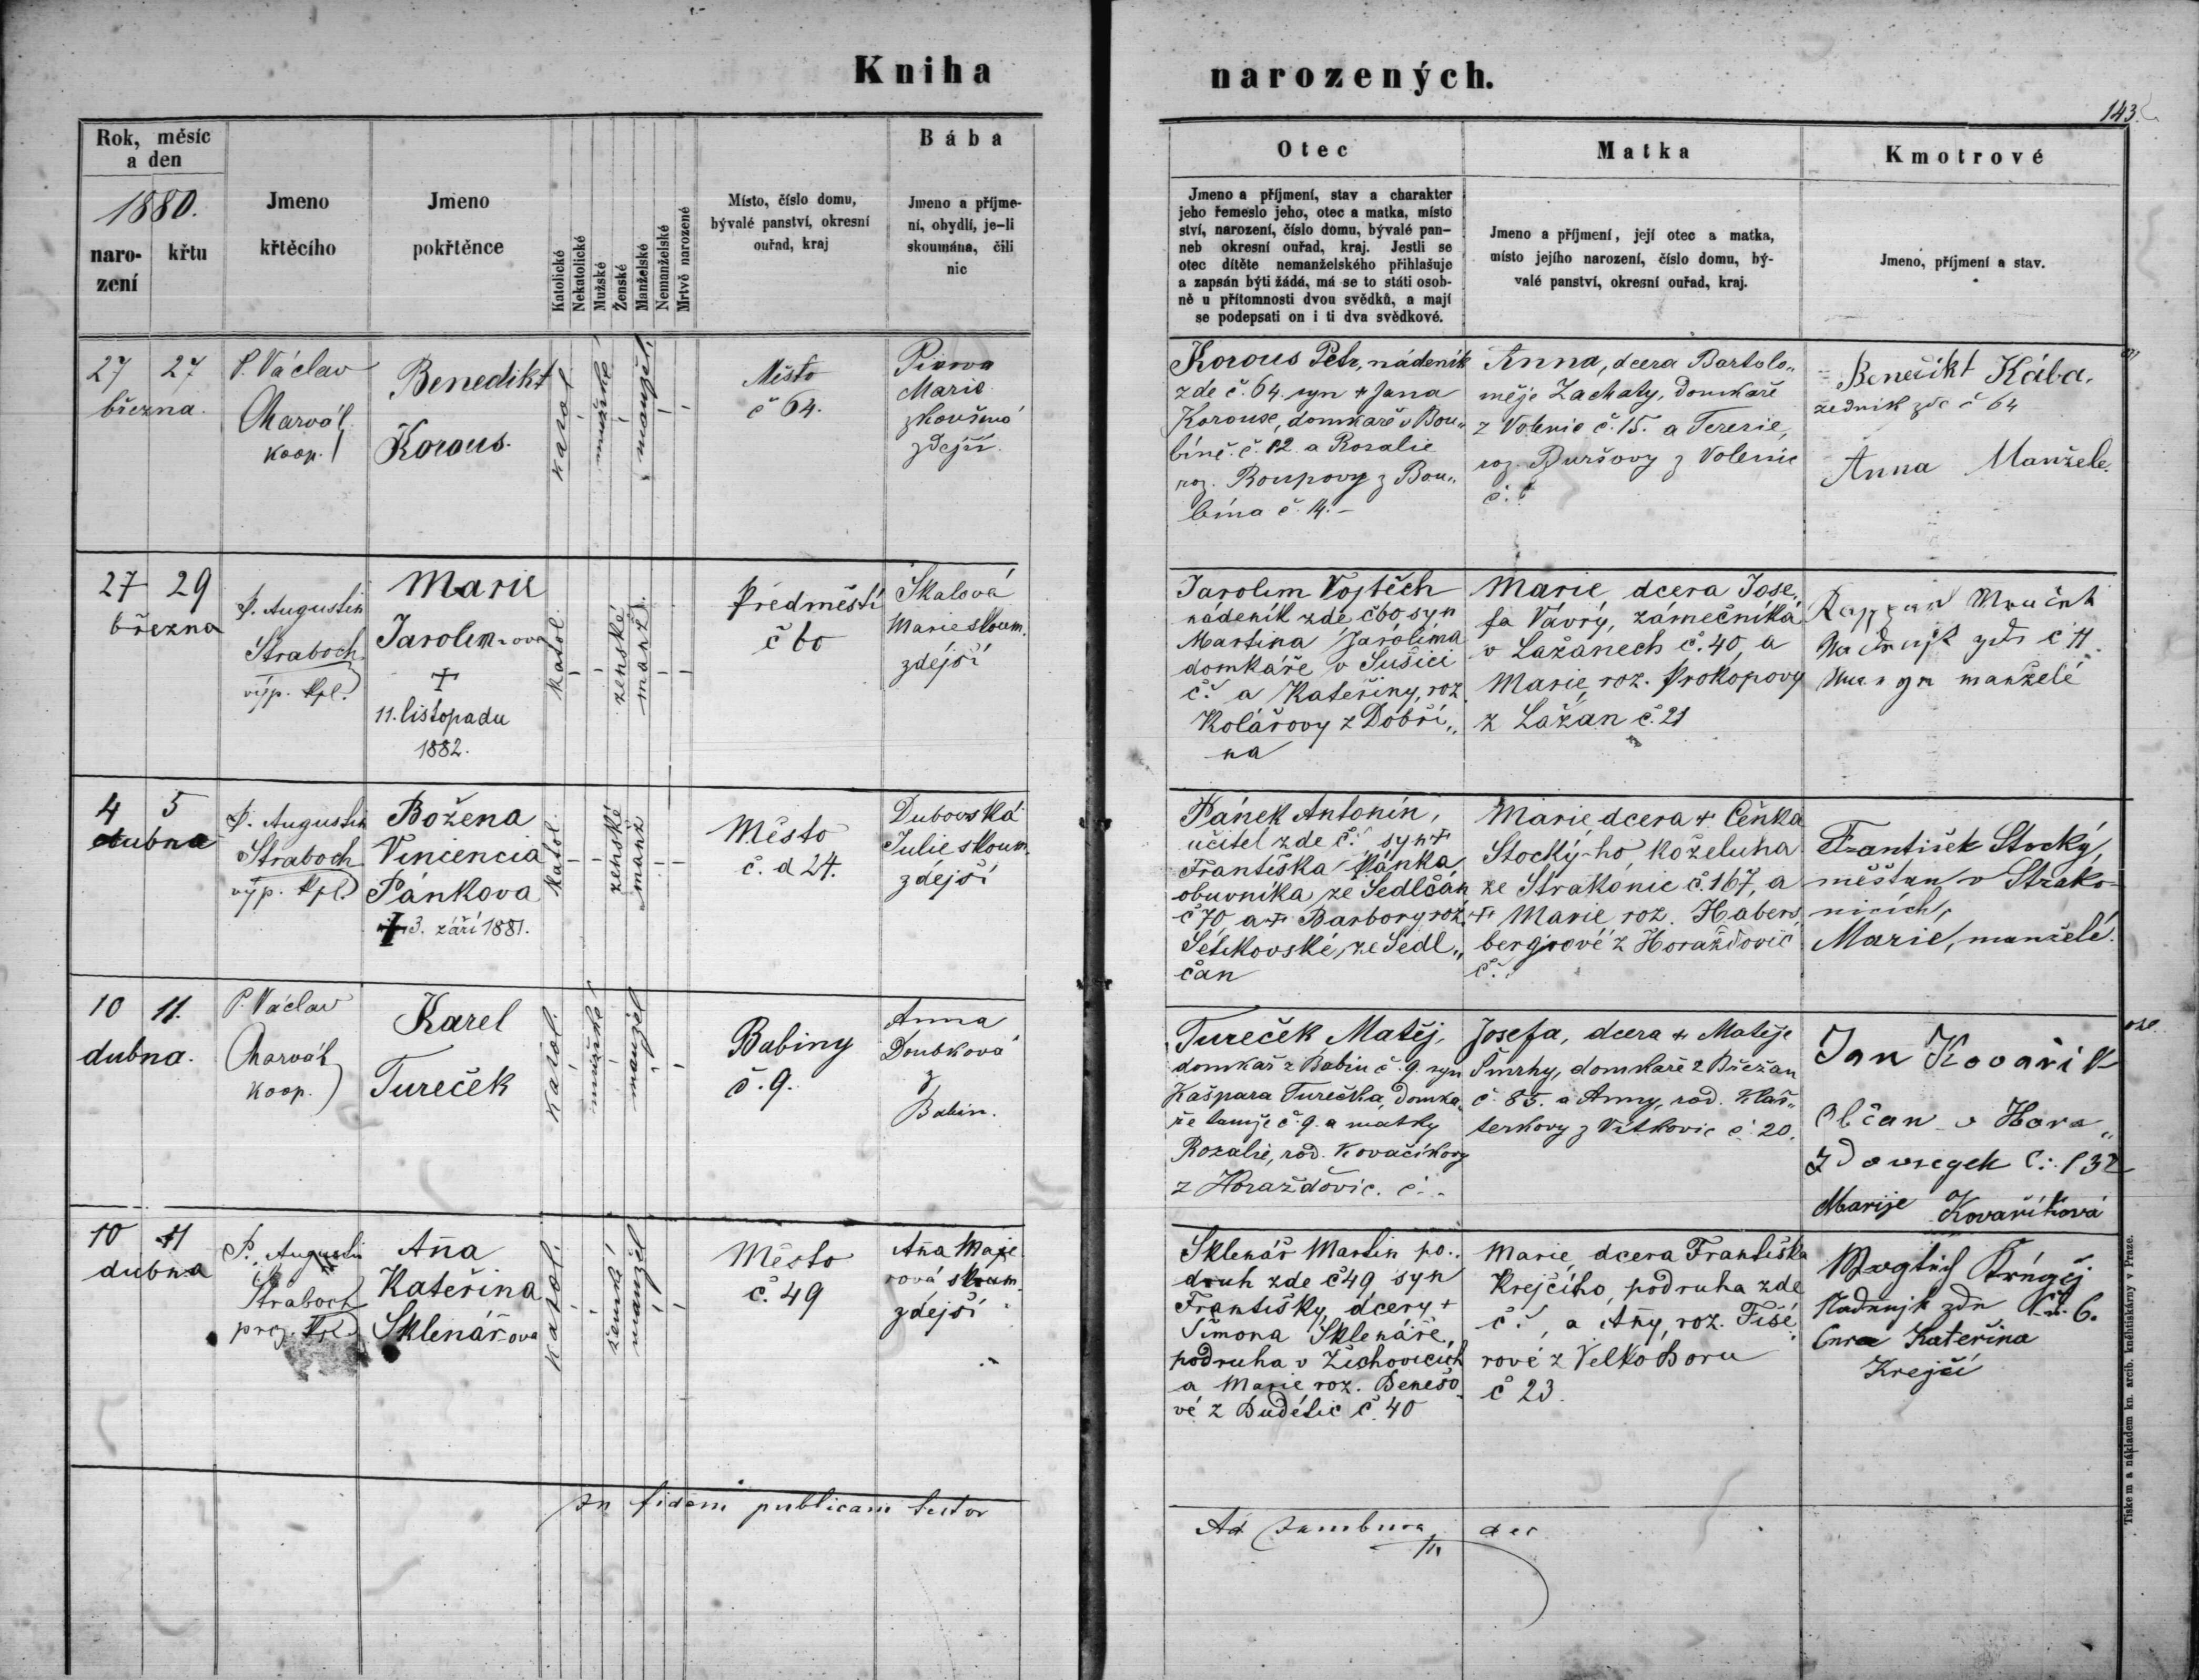 Kniha narozených.
143.
Rok, měsíc
a den
1880.
naro-
zení
křtu
Jmeno
křtěcího
Jmeno
pokřtěnce
Katolické
Nekatolické
Mužské
Ženské
Manželské
Nemanželské
Mrtvě narozené
Místo, číslo domu,
bývalé panství, okresní
ouřad, kraj
Bába
Jmeno a příjme-
ní, obydlí, je-li
skoumána, čili
nic
Otec
Jmeno a příjmení, stav a charakter
jeho řemeslo jeho, otec a matka, místo
ství, narození, číslo domu, bývalé pan-
neb okresní ouřad, kraj. Jestli se
otec dítěte nemanželského přihlašuje
a zapsán býti žádá, má se to státi osob-
ně u přítomnosti dvou svědků, a mají
se podepsati on i ti dva svědkové.
Matka
Jmeno a příjmení, její otec a matka,
místo jejího narození, číslo domu, bý-
valé panství, okresní ouřad, kraj.
Kmotrové
Jmeno, příjmení a stav.
27 27
března.
P. Václav
Charvát
koop.
Benedikt
Korous.
katol.
mužské
manžel.
Město
č 64.
Marie
zkoušená
zdejší.
Korous Petr, nádeník
zde č. 64. syn + Jana
Korouse, domkaře v Bou„
bíně č. 12 a Rosalie
roz. Roupovy z Bou„
bína č. 14.-
Anna, dcera Bartolo„
měje Zachaty, domkaře
z Volenic č. 15. a Terezie,
roz. Buršovy z Volenic
č. 6
Benedikt Kába.
zedník zde č 64
Anna Manžele.
27 29
března
P. Augustin
Straboch
výp. kpl.
Marie
Jarolím-ova
+
11. listopadu
1882.
katol.
ženské
manž.
Předměstí
č 60
Skalová
Marie skoum.
zdejší
Jarolím Vojtěch
nádeník zde č 60 syn
Martina Jarolíma
domkáře v Sušici
č. a Kateřiny, roz.
Kolářovy z Dobří„
na
Marie dcera Jose„
fa Vávry, zámečníka
v Lažánech č. 40, a
Marie, roz. Prokopovy
z Lažan č. 21
č 11.
manželé
4 5
dubna
P. Augustin
Straboch
výp. kpl.
Božena
Vincencia
Pánkova
+ 3. září 1881.
katol.
ženské
manž
Město
č. d 24.
Dubovská
Julie skoum.
zdejší
Pánek Antonín,
učitel zde č. syn +
Františka Pánka
obuvníka ze Sedlčan
č 70 a + Barbory roz.
ze Sedl„
čan
Marie dcera + Čeňka
Stocký-ho, koželuha
ze Strakonic č. 167, a
+ Marie roz. Habers„
bergrové z Horažďovic
č.
František Stocký,
měštan v Strako-
nicích,
Marie, manželé.
10 11.
dubna.
P. Václav
Charvát
koop.
Karel
Tureček
katol.
mužské
manžel
Babiny
č. 9.
Anna
Doubková
z
Babin.
Tureček Matěj,
domkař z Babin č. 9. syn
Kašpara Turečka, domka„
ře tamže č. 9. a matky
Rozalie, rod. Kovačíkovy
z Horažďovic. č.
Josefa, dcera + Matěje
Šmrhy, domkaře z Břežan
č. 85. a Anny, rod. Klaš„
terkovy z Vítkovic č. 20.
Jan Kovařik
Občan v Hora„
Zdowicgek č: 132
Marije Kovaříková
10 11
dubna
P. Augustin
Straboch
Aña
Kateřina
Sklenářova
katol.
ženské
manžel
Město
č. 49
Aña Maje
rová skoum.
zdejší
Sklenář Martin po„
druh zde č 49 syn
Františky, dcery +
Šimona Sklenáře,
podruha v Žichovicích
a Marie roz. Benešo
vé z Budětic č. 40
Marie dcera Františka
Krejčího, podruha zde
č. a Añy, roz. Fiše„
rové z Velkoboru
č 23.
6.
Kateřina
Krejčí
In fidem publicam testor
Tiskem a nákladem kn. arcib. knihtiskárny v Praze.